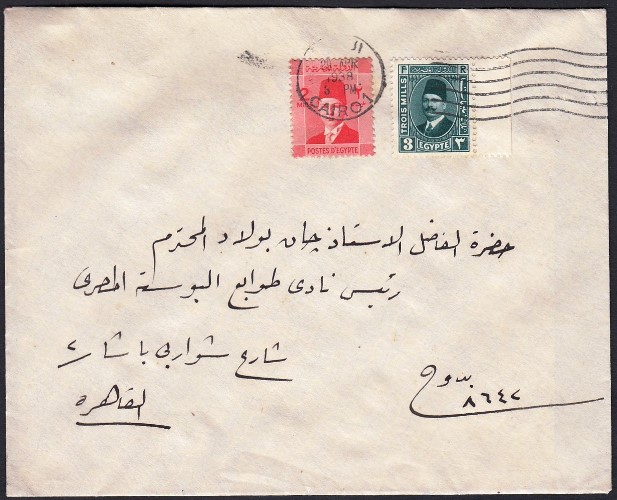 1938
PM
CAIRO.1
POSTES D'EGYPTE
F R
TROIS MILLS
3 EGYPTE ٣
حضرة الفاضل الاستاذ چان بولاد المحترم
رئيس نادى طوابع البوستة المصرى
شارع شواربى باشا ٢
القاهرة
بدوح
٨٦٤٢